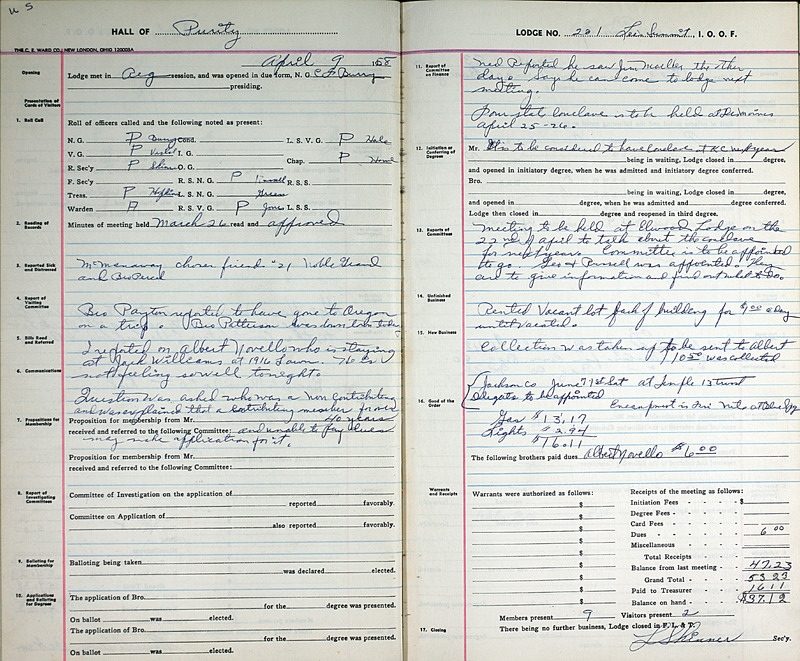 HALL OF Purity
THE C. E. WARD CO., NEW LONDON, OHIO
April 9 1958
Opening
Lodge met in Reg session, and was opened in due form, N. G.
presiding.
Presentation of Cards of Visitors
1. Roll Call
Roll of officers called and the following noted as present:
N. G. P Cond. L. S. V. G. P Hale
V. G. P I. G. Chap. P
R. Sec'y P O. G.
F. Sec'y R. S. N. G. P R. S. S.
Treas. P Hopkins L. S. N. G. Green
Warden P R. S. V. G. P Jones L. S. S.
2. Reading of Records
Minutes of meeting held March 26 read and approved
3. Reported Sick and Distressed
McManaway chosen friend #21 Noble Grand
and Bro
4. Report of Visiting Committee
Bro Payton reported to have gone to Oregon
on a trip. Bro Patterson was down town today
5. Bills Read and Referred
I reported on Albert Novello who is staying
at Jack Williams at 1916 Lawn. He is
6. Communications
not feeling so well tonight.
Question was asked who was a non contributing
and was explained that a contributing member for over
7. Propositions for Membership
Proposition for membership from Mr. 40 years
received and referred to the following Committee: and unable to pay dues
may make application for it.
Proposition for membership from Mr.
received and referred to the following Committee:
8. Report of Investigating Committees
Committee of Investigation on the application of
reported favorably.
Committee on Application of
also reported favorably.
9. Balloting for Membership
Balloting being taken
was declared elected.
10. Applications and Balloting for Degrees
The application of Bro.
for the degree was presented.
On ballot was elected.
The application of Bro.
for the degree was presented.
On ballot was elected.
LODGE NO. 291 Lees Summit, I. O. O. F.
11. Report of Committee on Finance
Ned Reported he saw Jim Moeller the other
day. Says he can come to lodge next
meeting.
Four state Conclave is to be held at Desmoines
April 25-26.
12. Initiation or Conferring of Degrees
Mr. It is to be considered to have Conclave I K C next year
being in waiting, Lodge closed in degree,
and opened in initiatory degree, when he was admitted and initiatory degree conferred.
Bro.
being in waiting, Lodge closed in degree,
and opened in degree, when he was admitted and degree conferred.
Lodge then closed in degree and reopened in third degree.
13. Reports of Committees
Meeting to be held at Elwood Lodge on the
22nd of April to talk about the conclave
for next year. Committee is to be appointed
to go. Geo & Russell was appointed. They
are to give information and find out what to do.
14. Unfinished Business
Rented Vacant lot back of building for $1.00 a day
until vacated.
15. New Business
Collection was taken up to be sent to Albert
10.50 was collected
16. Good of the Order
Jackson Co June 7 1st Sat at Temple 13
delegates to be appointed
Encampment is Fri nite at Blue
Gas $13.17
Lights $2.94
$16.11
The following brothers paid dues Albert Novello $6.00
Warrants and Receipts
Warrants were authorized as follows:
$
$
$
$
$
$
$
$
$
$
Receipts of the meeting as follows:
Initiation Fees - - $
Degree Fees - - - -
Card Fees - - - - -
Dues - - - - - 6 00
Miscellaneous - - -
Total Receipts
Balance from last meeting - 47.23
Grand Total - - 53.23
Paid to Treasurer - 16.11
Balance on hand - - $37.12
Members present 9 Visitors present 2
17. Closing
There being no further business, Lodge closed in F. L. & T.
L Skinner Sec'y.